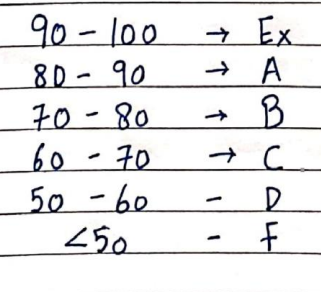 90 - 100 → Ex
80 - 90 → A
70 - 80 → B
60 - 70 → C
50 - 60 - D
<50 - F